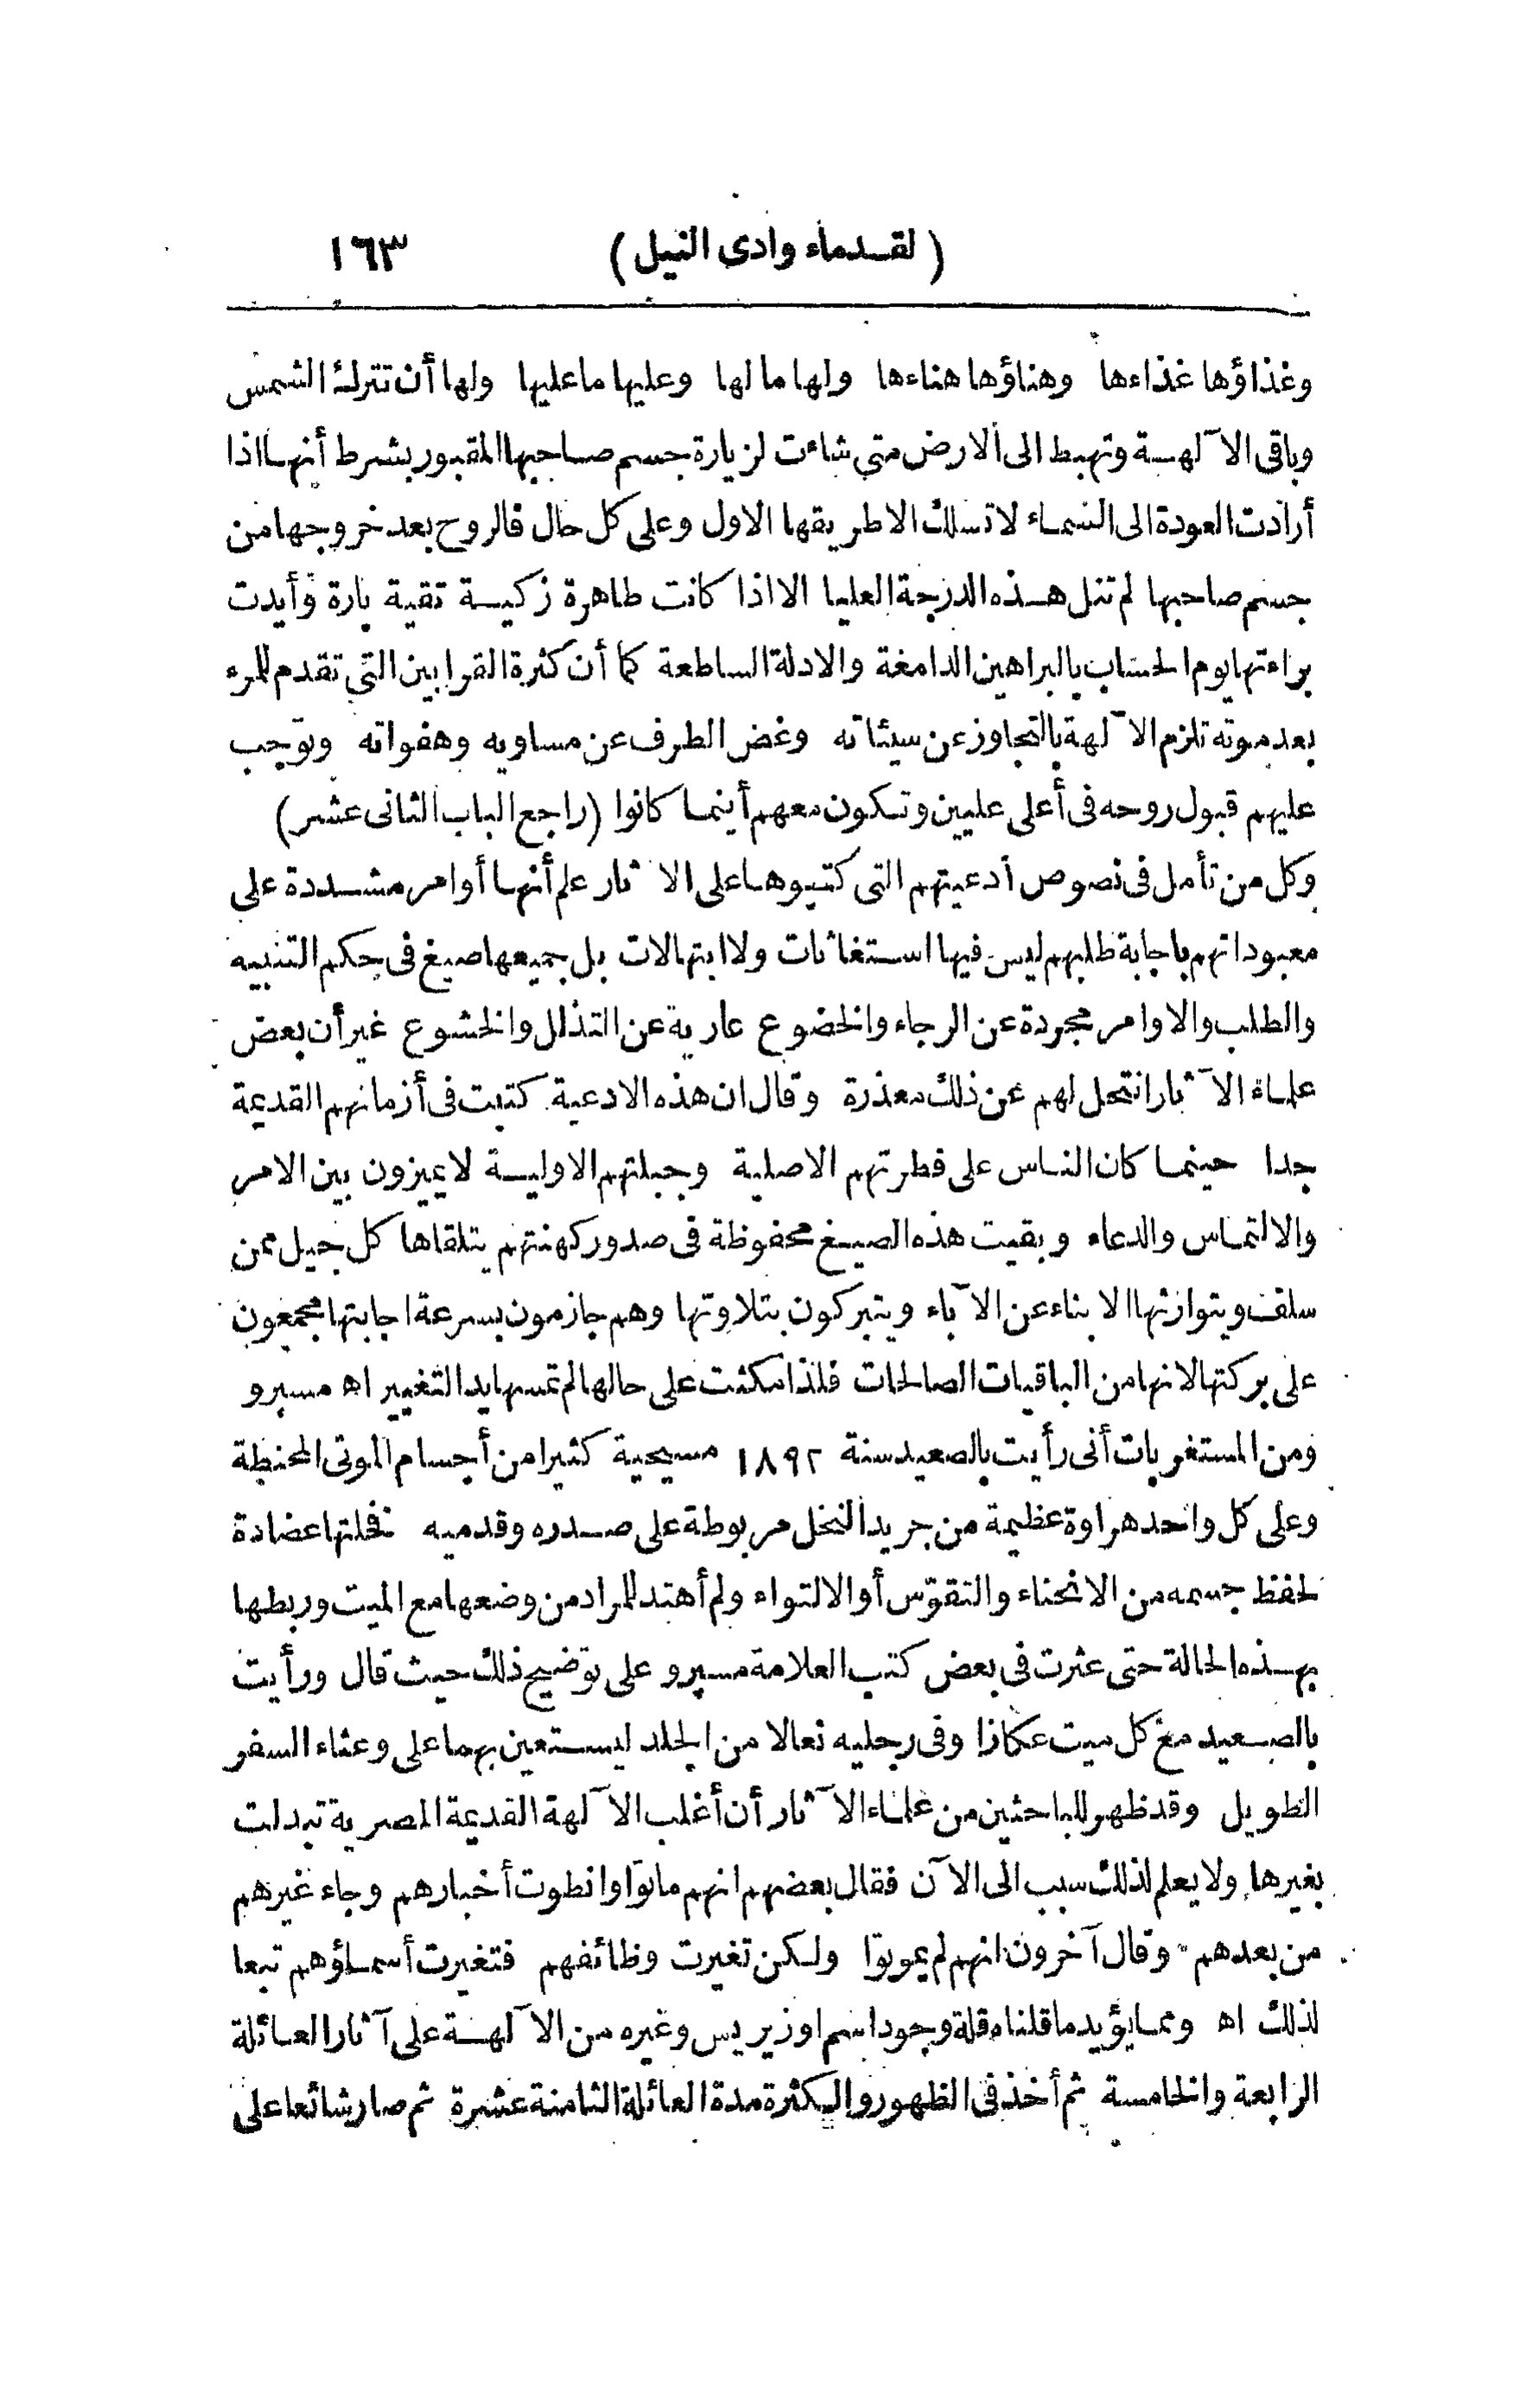 (لقدماء وادى النيل) ١٦٣
وغذاؤها غذاءها وهناؤها هناءها ولها مالها وعليها ماعليها ولها أن تترك الشمس
وباقى الآلهة وتهبط الى الارض متى شاءت لزيارة جسم صاحبها المقبور بشرط أنها اذا
أرادت العودة الى السماء لاتسلك الاطريقها الاول وعلى كل حال فالروح بعد خروجها من
جسم صاحبها لم تنل هذه الدرجة العليا الا اذا كانت طاهرة زكية تقية بارة وأيدت
براءتها يوم الحساب بالبراهين الدامغة والادلة الساطعة كما أن كثرة القرابين التى تقدم للمرء
بعدموته تلزم الآلهة بالتجاوز عن سيئاته وغض الطرف عن مساويه وهفواته وتوجب
عليهم قبول روحه فى أعلى عليين وتكون معهم أينما كانوا (راجع الباب الثانى عشر)
وكل من تأمل فى نصوص أدعيتهم التى كتبوها على الآثار علم أنها أوامر مشددة على
معبوداتهم باجابة طلبهم ليس فيها استغاثات ولا ابتهالات بل جميعها صيغ فى حكم التنبيه
والطلب والاوامر مجردة عن الرجاء والخضوع عارية عن التذلل والخشوع غير أن بعض
علماء الآثار انتحل لهم عن ذلك معذرة وقال ان هذه الادعية كتبت فى أزمانهم القديمة
جدا حينما كان الناس على فطرتهم الاصلية وجبلتهم الاولية لايميزون بين الامر
والالتماس والدعاء وبقيت هذه الصيغ محفوظة فى صدور كهنتهم يتلقاها كل جيل ممن
سلف ويتوارثها الابناء عن الآباء ويتبركون بتلاوتها وهم جازمون بسرعة اجابتها مجمعون
على بركتها لانها من الباقيات الصالحات فلذا مكثت على حالها لم تمسها يد التغيير اه مسپرو
ومن المستغربات أنى رأيت بالصعيد سنة ١٨٩٢ مسيحية كثيرا من أجسام الموتى المحنطة
وعلى كل واحد هراوة عظيمة من جريد النخل مربوطة على صدره وقدميه نفلتها عضادة
لحفظ جسمه من الانحناء والتقوّس أو الالتواء ولم أهتد للمراد من وضعها مع الميت وربطها
بهذه الحالة حتى عثرت فى بعض كتب العلامة مسپرو على توضيح ذلك حيث قال ورأيت
بالصعيد مع كل ميت عكازا وفى رجليه نعالا من الجلد ليستعين بهما على وعثاء السفر
الطويل وقد ظهر للباحثين من علماء الآثار أن أغلب الآلهة القديمة المصرية تبدلت
بغيرها ولايعلم لذلك سبب الى الآن فقال بعضهم انهم ماتوا وانطوت أخبارهم وجاء غيرهم
من بعدهم وقال آخرون انهم لم يموتوا ولكن تغيرت وظائفهم فتغيرت أسماؤهم تبعا
لذلك اه ومما يؤيد ماقلناه قلة وجود اسم اوزيريس وغيره من الآلهة على آثار العائلة
الرابعة والخامسة ثم أخذ فى الظهور والكثرة مدة العائلة الثامنة عشرة ثم صار شائعا على